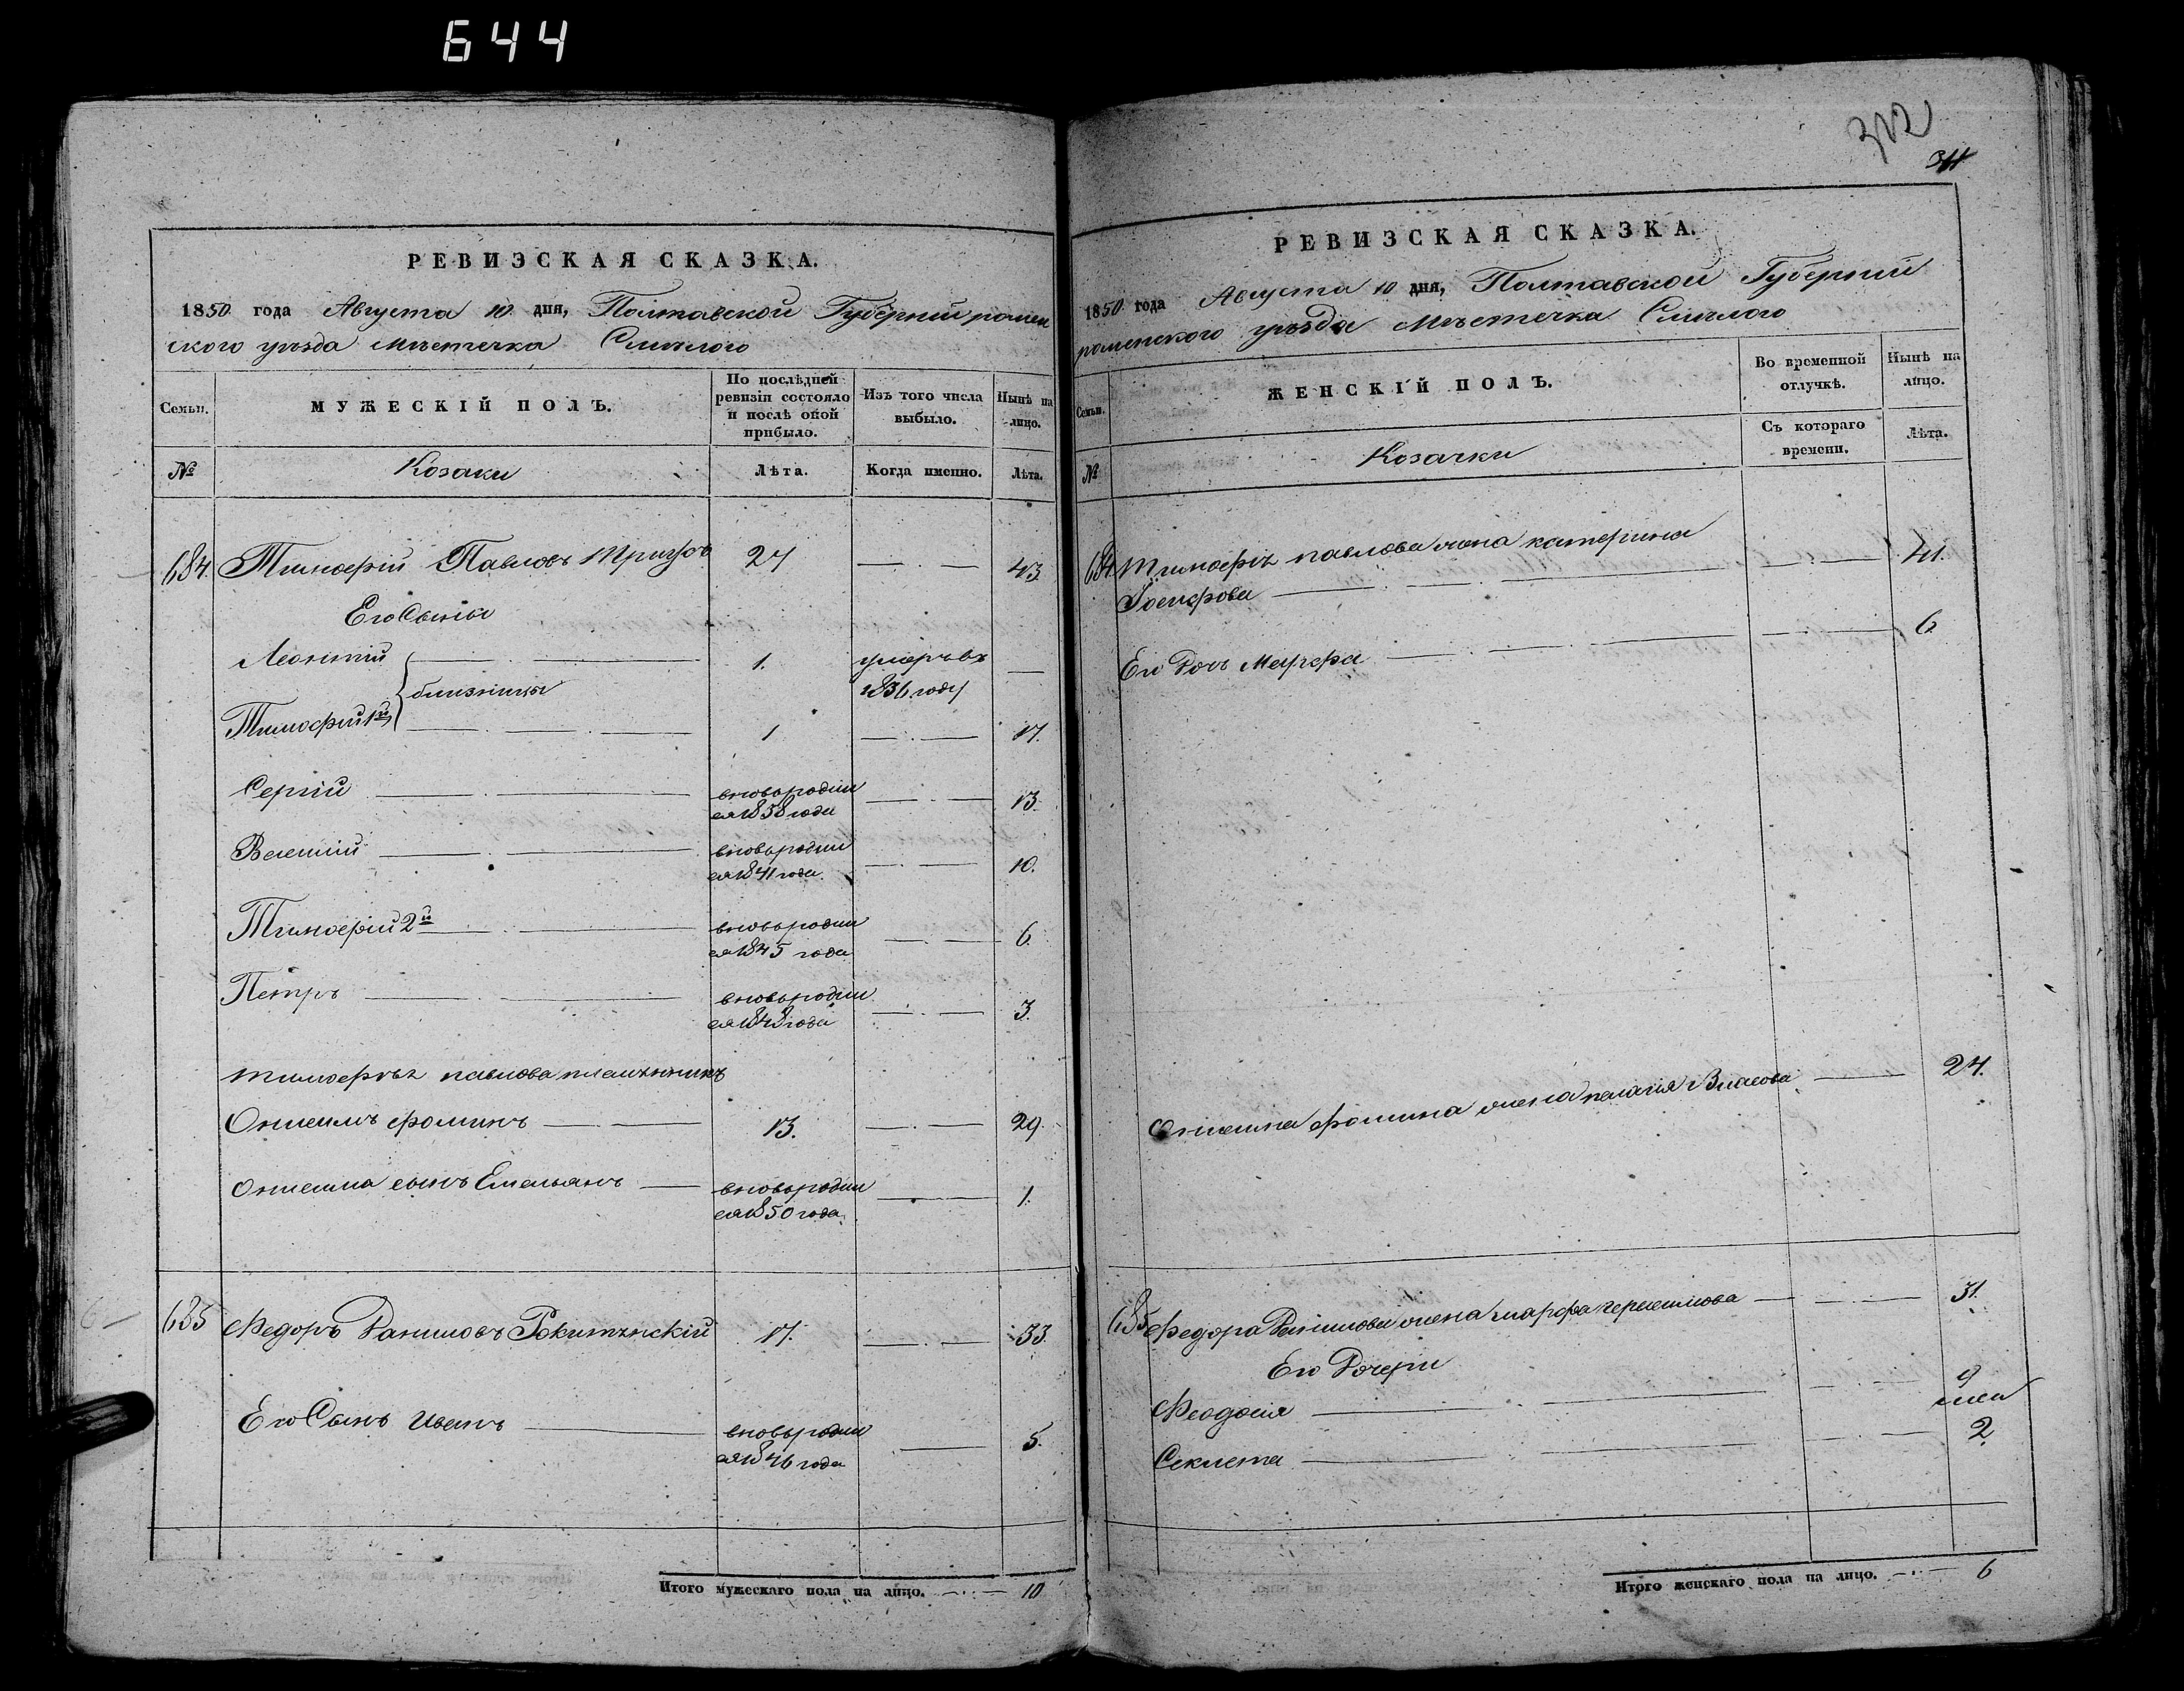 644
РЕВИЗСКАЯ СКАЗКА.
1850 года Августа 10 дня, Полтавской Губернии ромен
ского уѣзда мѣстечка Смѣлого
Семьи.
МУЖЕСКІЙ ПОЛЪ.
По послѣдней ревизіи состояло и послѣ оной прибыло.
Изъ того числа выбыло.
Нынѣ на лицо.
№
Козаки
Лѣта.
Когда именно.
Лѣта.
684. Тимофій Павловъ 27 43
Его Сыны
Леонтій 1. умеръ въ 1836 году
близнецы
Тимофій 1й 1 17.
Сергій вновь родил
ся 1838 года 13.
Василій вновь родил
ся 1841 года 10.
Тимофій 2й вновь родил
ся 1845 года 6.
Петръ вновь родил
ся 1848 года 3.
тимофія павлова племѣнникъ
Онисимъ фоминъ 13. 29.
Онисима сынъ Емельянъ вновь родил
ся 1850 года 1.
685 Федоръ Даниловъ Рокитянскій 17. 33.
Его Сынъ Иванъ вновь родил
ся 1846 года 5.
Итого мужескаго пола на лицо. 10
312
311
РЕВИЗСКАЯ СКАЗКА.
1850 года Августа 10 дня, Полтавской Губерний
роменского уѣзда мѣстечка Смѣлого
Семьи.
ЖЕНСКІЙ ПОЛЪ.
Во временной отлучкѣ.
Нынѣ на лицо.
№
Козачки
Съ котораго времени.
Лѣта.
684 тимофія павлова жена катерина
41.
Его Дочь 6.
Онисима фомина жена пелагия Власова 24.
685 Федора Данилова жена марфа 31.
Его Дочери
Феодосія 9 мѣс
Секлета 2.
Итого женскаго пола на лицо. 6